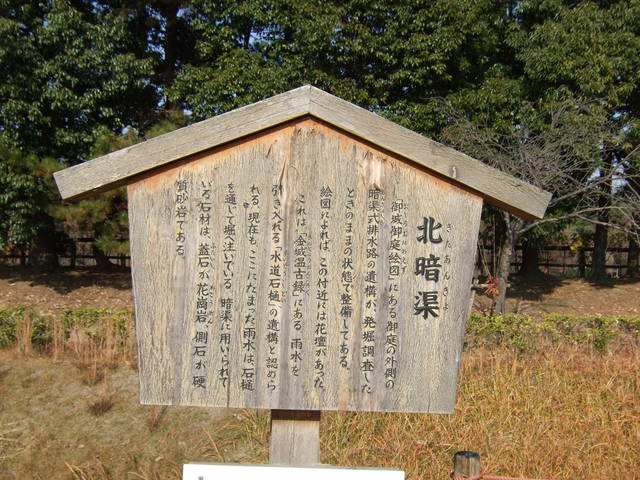 北暗渠
きたあんきょ
「御城御庭絵図」にある御庭の外側の
暗渠式排水路の遺構が、発掘調査した
ときのままの状態で整備してある。
絵図によれば、この付近には花壇があった。
これは、「金城温古録」にある、雨水を
引き入れる「水道石樋」の遺構と認めら
れる。現在も、ここにたまった雨水は石樋
を通じて堀へ注いでいる。暗渠に用いられて
いる石材は、蓋石が花崗岩、側石が硬
質砂岩である。